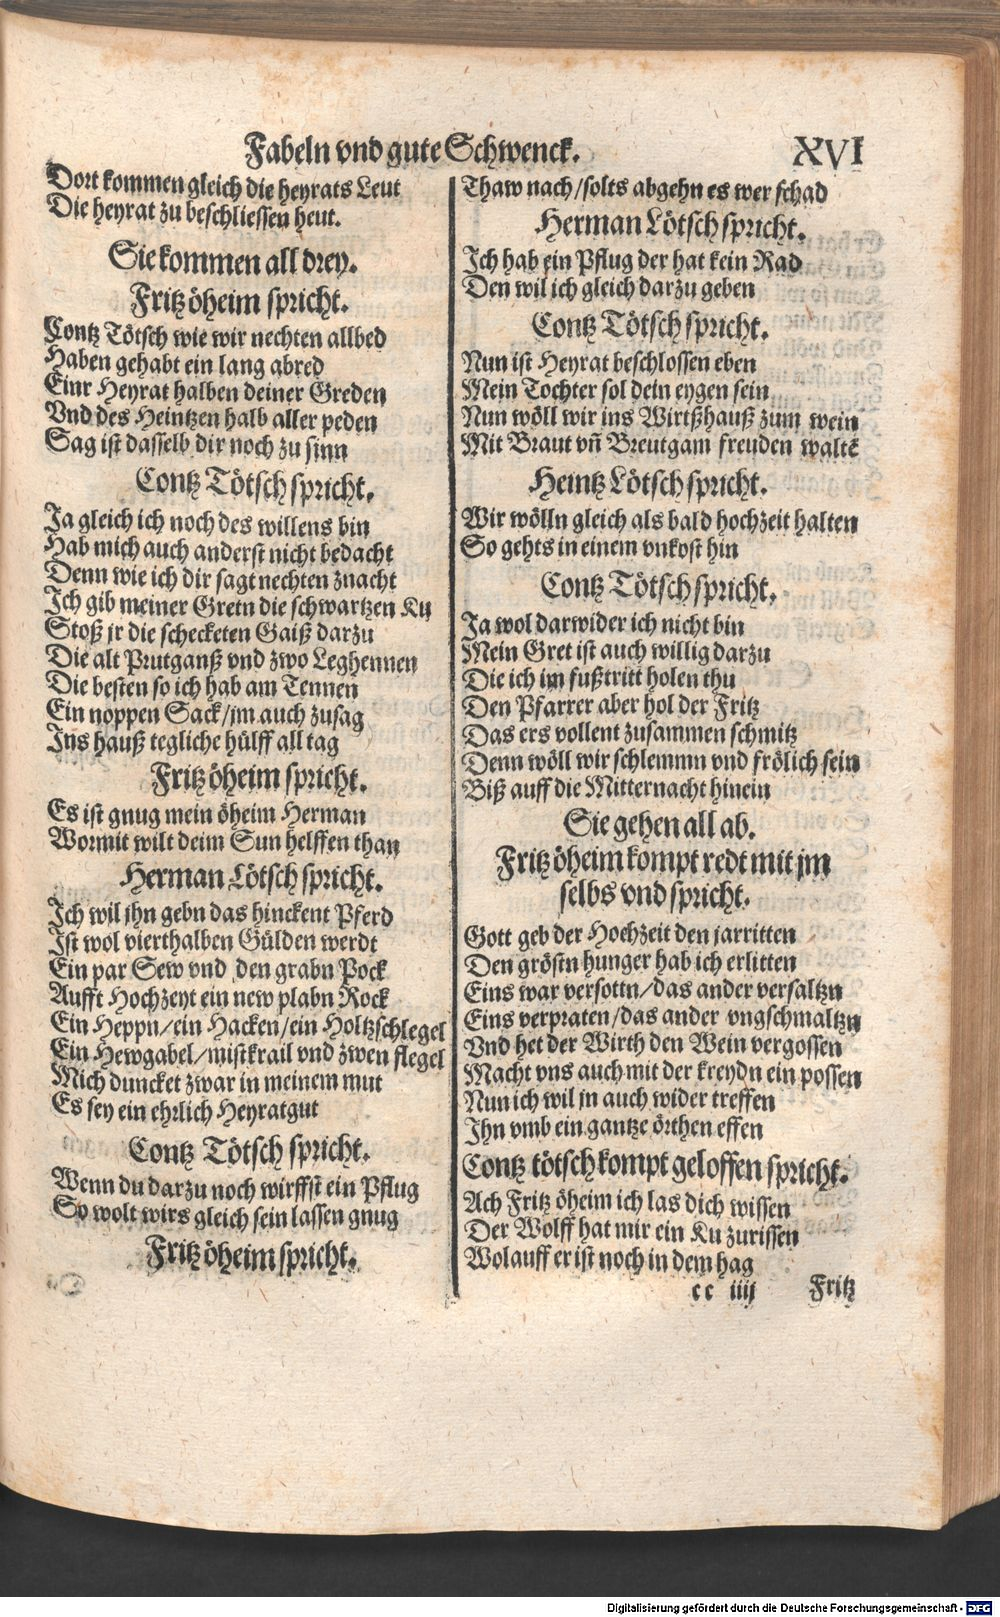 Fabeln vnd gute Schwenck. XVI
Dort kommen gleich die heyrats Leut
Die heyrat zu beschliessen heut.
Sie kommen all drey.
Fritz öheim spricht.
Contz Tötsch wie wir nechten allbed
Haben gehabt ein lang abred
Einr Heyrat halben deiner Greden
Vnd des Heintzen halb aller peden
Sag ist dasselb dir noch zu sinn
Contz Tötsch spricht.
Ja gleich ich noch des willens bin
Hab mich auch anderst nicht bedacht
Denn wie ich dir sagt nechten znacht
Ich gib meiner Gretn die schwartzen Ku
Stoß jr die schecketen Gaiß darzu
Die alt Prutganß vnd zwo Leghennen
Die besten so ich hab am Tennen
Ein noppen Sack/jm auch zusag
Ins hauß tegliche hülff all tag
Fritz öheim spricht.
Es ist gnug mein öheim Herman
Wormit wilt deim Sun helffen than
Herman Lötsch spricht.
Ich wil jhn gebn das hinckent Pferd
Ist wol vierthalben Gülden werdt
Ein par Sew vnd den grabn Pock
Aufft Hochzeyt ein new plabn Rock
Ein Heppn/ein Hacken/ein Holtzschlegel
Ein Hewgabel/mistkrail vnd zwen flegel
Mich duncket zwar in meinem mut
Es sey ein ehrlich Heyratgut
Contz Tötsch spricht.
Wenn du darzu noch wirffst ein Pflug
So wolt wirs gleich sein lassen gnug
Fritz öheim spricht.
Thaw nach/solts abgehn es wer schad
Herman Lötsch spricht.
Ich hab ein Pflug der hat kein Rad
Den wil ich gleich darzu geben
Contz Tötsch spricht.
Nun ist Heyrat beschlossen eben
Mein Tochter sol dein eygen sein
Nun wöll wir ins Wirtßhauß zum wein
Mit Braut vñ Breutgam freuden waltē
Heintz Lötsch spricht.
Wir wölln gleich als bald hochzeit halten
So gehts in einem vnkost hin
Contz Tötsch spricht.
Ja wol darwider ich nicht bin
Mein Gret ist auch willig darzu
Die ich im fußtritt holen thu
Den Pfarrer aber hol der Fritz
Das ers vollent zusammen schmitz
Denn wöll wir schlemmn vnd frölich sein
Biß auff die Mitternacht hinein
Sie gehen all ab.
Fritz öheim kompt redt mit jm
selbs vnd spricht.
Gott geb der Hochzeit den jarritten
Den gröstn hunger hab ich erlitten
Eins war versottn/das ander versaltzn
Eins verpraten/das ander vngschmaltzn
Vnd het der Wirth den Wein vergossen
Macht vns auch mit der kreydn ein possen
Nun ich wil jn auch wider treffen
Ihn vmb ein gantze örthen effen
Contz tötsch kompt geloffen spricht.
Ach Fritz öheim ich las dich wissen
Der Wolff hat mir ein Ku zurissen
Wolauff er ist noch in dem hag
cc iiij Fritz
Digitalisierung gefördert durch die Deutsche Forschungsgemeinschaft - DFG